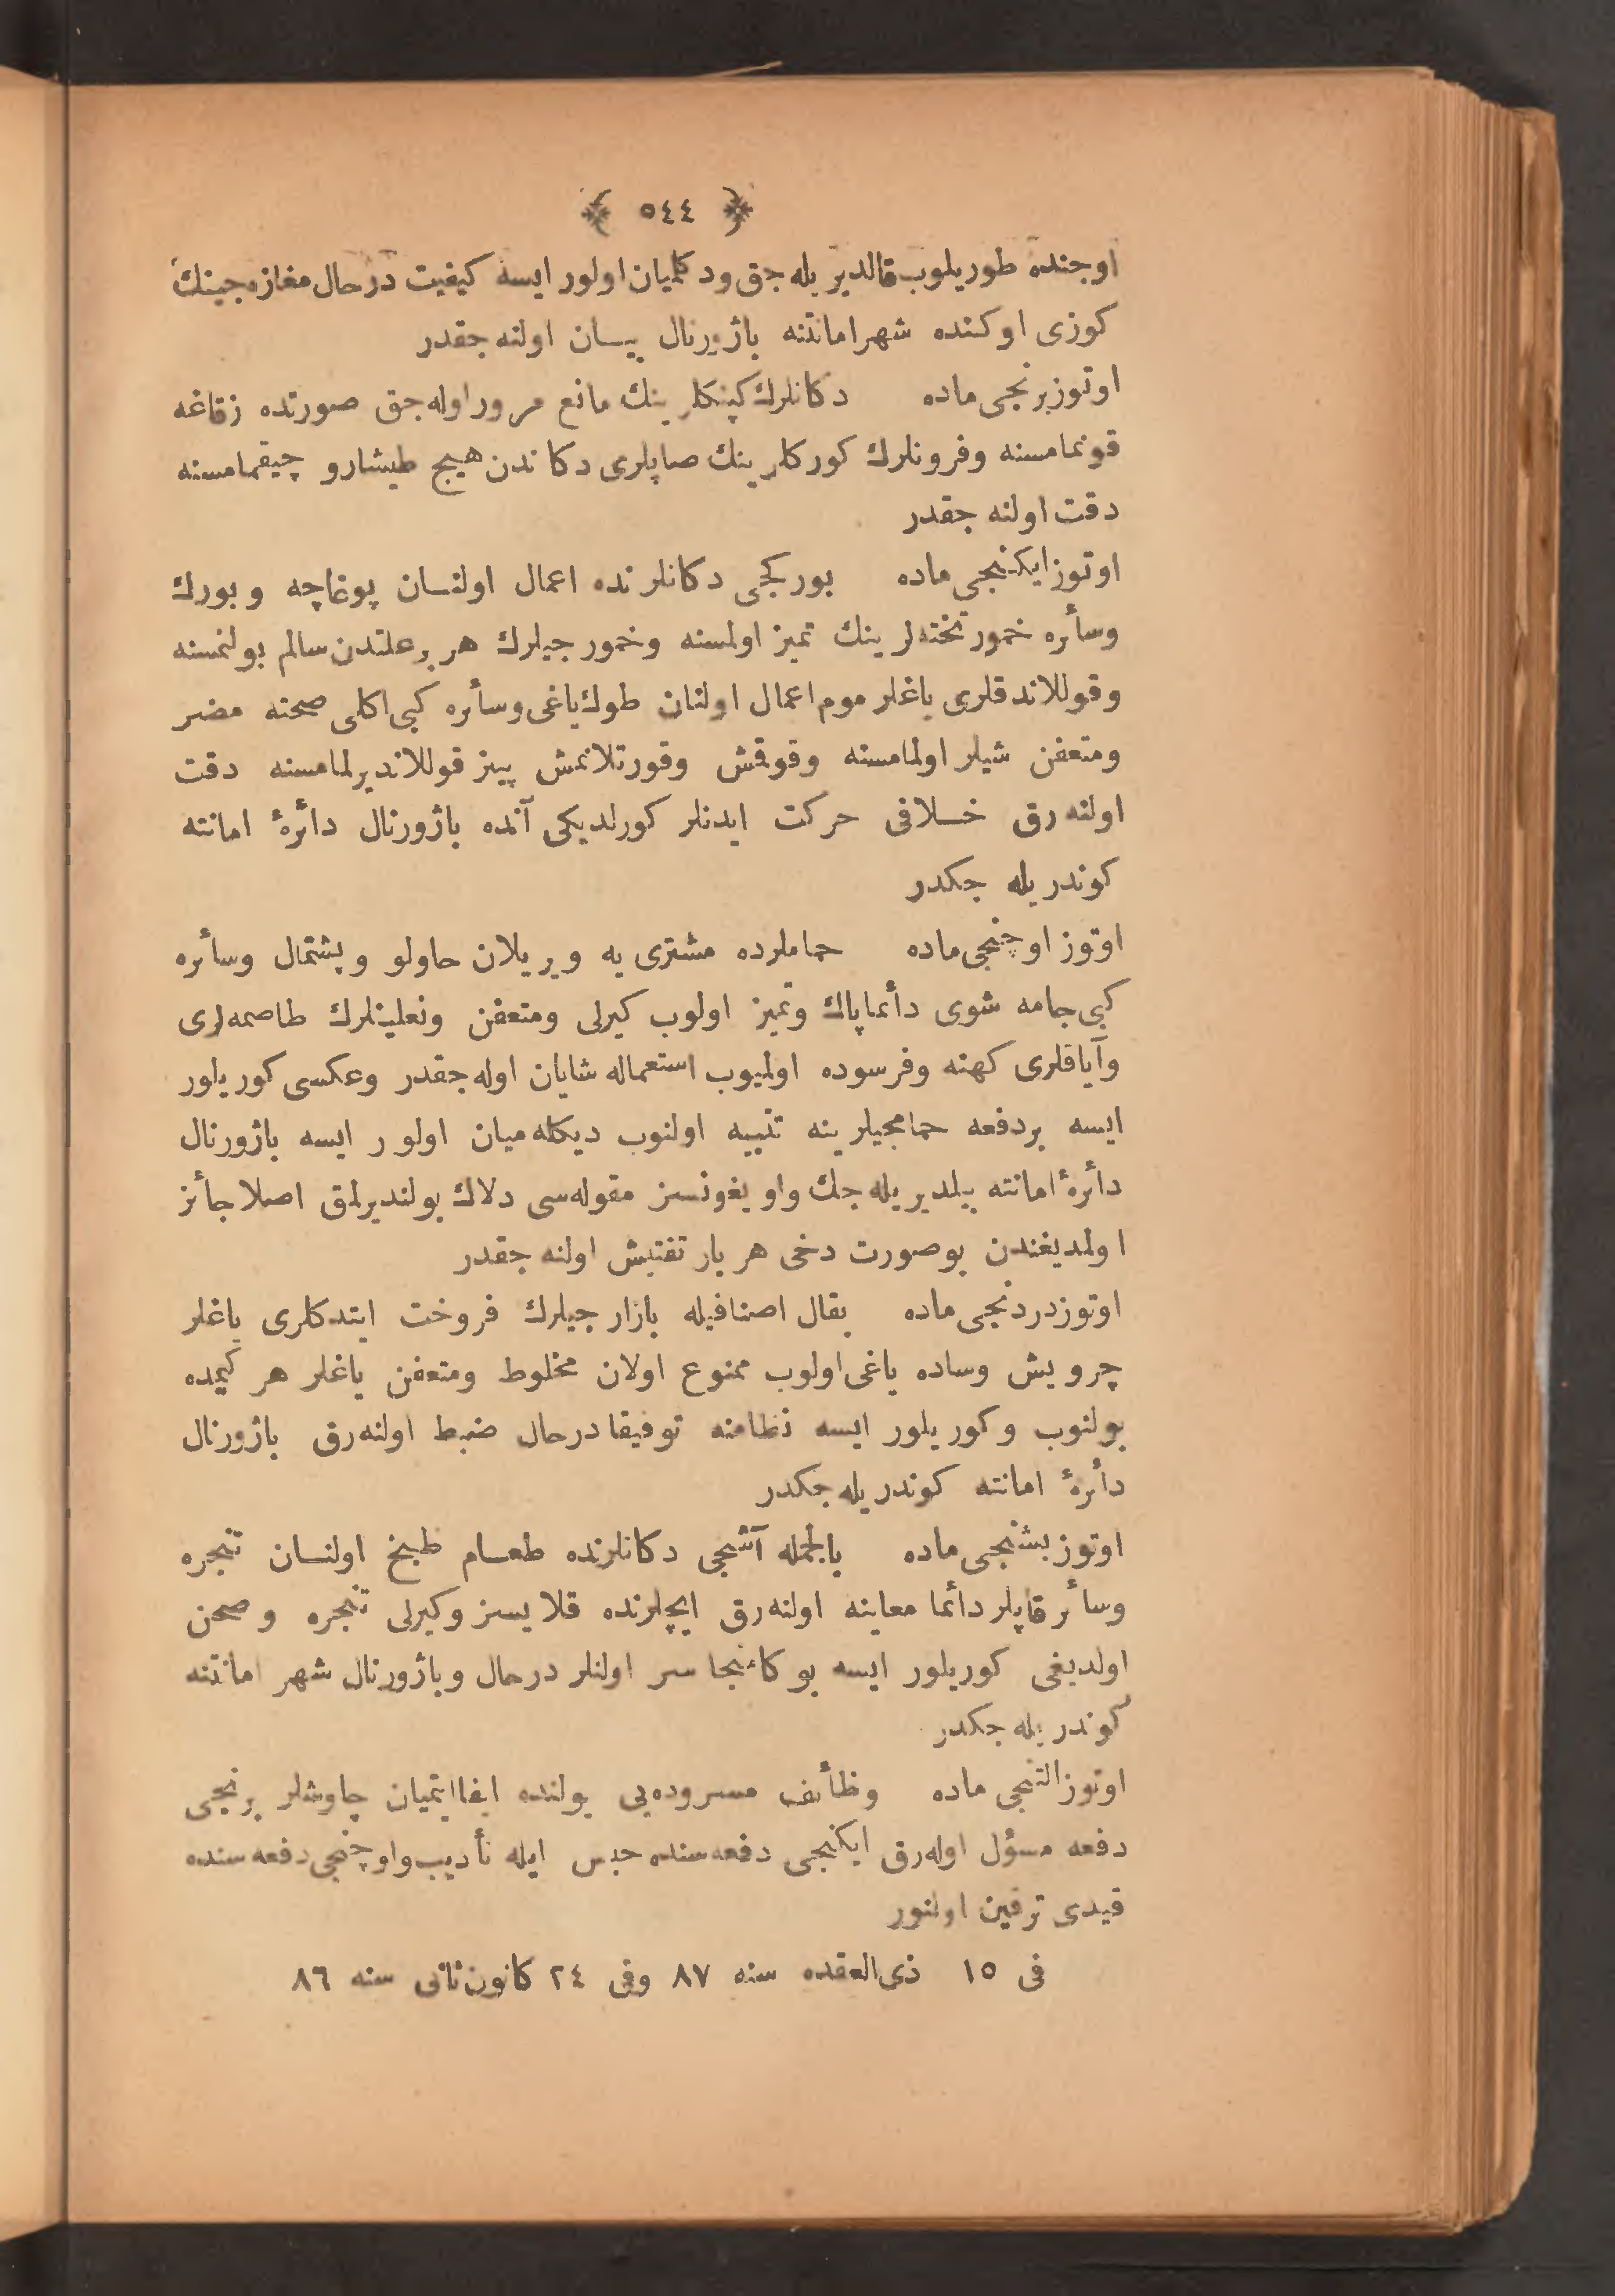 ﴿ ٥٤٤ ﴾
اوجنده طوريلوب قالديريله جق ودكليان اولور ايسه كيفيت درحال مغازه جينك
كوزى اوكنده شهرامانتنه باژورنال بيان اولنه جقدر
اوتوز برنجى ماده دكانلرك كپنكلرينك مانع مرور اوله جق صورتده زقاغه
قونمامسنه وفرونلرك كوركلرينك صاپلرى دكاندن هيچ طيشارو چيقمامسنه
دقت اولنه جقدر
اوتوز ايكنجى ماده بوركجى دكانلرنده اعمال اولنان پوغاچه وبورك
وسأره خمور تخته لرينك تميز اولمسنه وخمورجيلرك هر بر علتدن سالم بولنمسنه
وقوللاندقلرى ياغلر موم اعمال اولنان طوك ياغى وسأره كبى اكلى صحته مضر
ومتعفن شيلر اولمامسنه وقوقمش وقورتلانمش پينر قوللانديرلمامسنه دقت
اولنه رق خلافى حركت ايدنلر كورلديكى آنده باژورنال دأرهٔ امانته
كوندريله جكدر
اوتوز اوچنجى ماده حماملرده مشترى يه ويريلان حاولو وپشتمال وسأره
كبى جامه شوى دأئما پاك وتميز اولوب كيرلى ومتعفن ونعلينلرك طاصمه لرى
وآياقلرى كهنه وفرسوده اولميوب استعماله شايان اوله جقدر وعكسى كوريلور
ايسه بردفعه حمامجيلرينه تنبيه اولنوب ديكله ميان اولور ايسه باژورنال
دأرهٔ امانته بيلديريله جك واويغونسز مقوله سى دلاك بولنديرلمق اصلا جأز
اولمديغندن بوصورت دخى هر بار تفتيش اولنه جقدر
اوتوز دردنجى ماده بقال اصنافيله بازارجيلرك فروخت ايتدكلرى ياغلر
چرويش وساده ياغى اولوب ممنوع اولان مخلوط ومتعفن ياغلر هر كيمده
بولنوب وكوريلور ايسه نظامنه توفيقا درحال ضبط اولنه رق باژورنال
دأرهٔ امانته كوندريله جكدر
اوتوز بشنجى ماده بالجمله آشجى دكانلرنده طعام طبخ اولنان تنجره
وسأر قاپلر دأئما معاينه اولنه رق ايچلرنده قلايسز وكيرلى تنجره وصحن
اولديغى كوريلور ايسه بوكا متجاسر اولنلر درحال وباژورنال شهر امانتنه
كوندريله جكدر
اوتوز التنجى ماده وظأئف مسروده يى يولنده ايفا ايتميان چاوشلر برنجى
دفعه مسؤل اوله رق ايكنجى دفعه سنده حبس ايله تأديب واوچنجى دفعه سنده
قيدى ترقين اولنور
فى ١٥ ذى القعده سنه ٨٧ وفى ٢٤ كانون ثانى سنه ٨٦